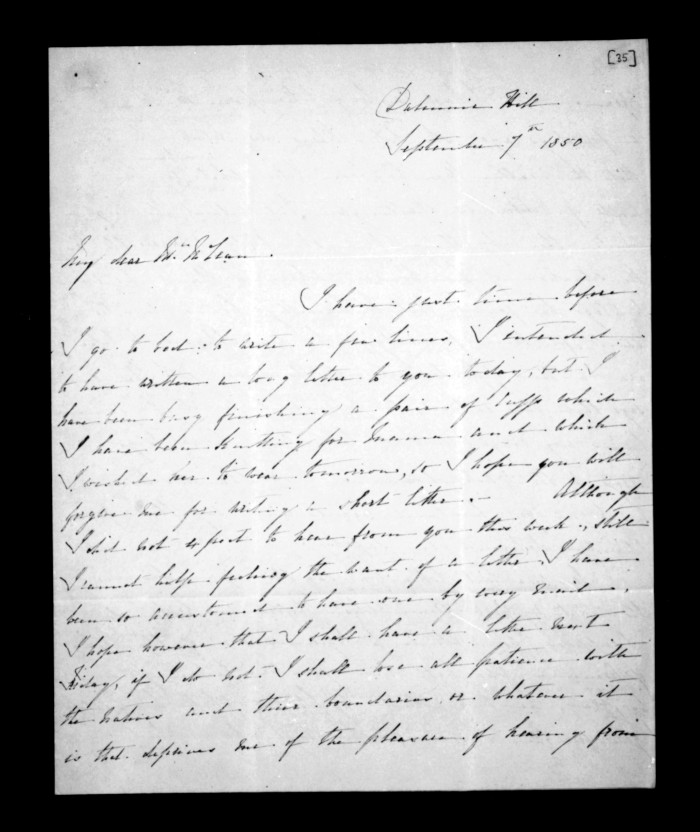 [35]
Dalmuir Hill
September 7th 1850
My dear Mr McLean.
I have just time before
I go to bed to write a few lines, I intended
to have written a long letter to you today, but I
have been busy finishing a pair of cuffs which
I have been knitting for Mama and which
I wished her to wear tomorrow, so I hope you will
forgive me for writing a short letter. - Although
I did not expect to hear from you this week, still
I cannot help feeling the want of a letter, I have
been so accustomed to have one by every mail,
I hope however that I shall have a letter next
Friday, if I do not I shall lose all patience with
the natives and their boundaries or whatever it
is that deprives me of the pleasure of hearing from